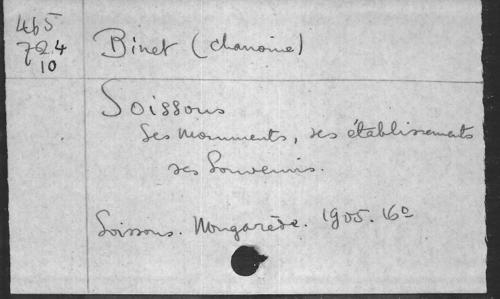 465
724
10
Binet (chanoine)
Soissons
Ses Monuments, ses établissements
ses Souvenirs.
Soissons. Nougarède. 1905. 16º